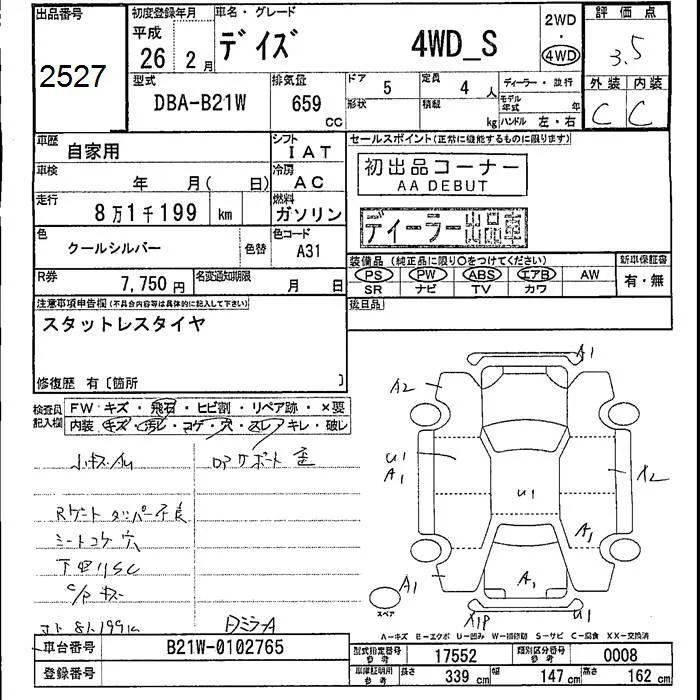 出品番号
2527
初度登録年月
平成
26 2月
車名・グレード
デイズ 4WD_S
2WD
・
4WD
評価点
3.5
型式
DBA-B21W
排気量
659
CC
ドア
5
定員
4 人
形状
積載
kg
ディーラー・並行
モデル年式 年
ハンドル 左・右
外装 内装
C C
車歴
自家用
シフト
IAT
車検
年 月( 日)
冷房
AC
走行
8万1千199 km
燃料
ガソリン
色
クールシルバー
色替
色コード
A31
R券
7,750円
名変通知期限
月 日
セールスポイント(正常に機能するものに限ります)
初出品コーナー
AA DEBUT
ディーラー出品車
装備品 (純正品に限り○をつけてください)
PS PW ABS エアB AW
SR ナビ TV カワ
新車保証書
有・無
後日品
注意事項申告欄(不具合内容等は具体的に記入して下さい)
スタットレスタイヤ
修復歴 有〔箇所 〕
検査員記入欄
FW キズ・飛石・ヒビ割・リペア跡・×要
内装 キズ・汚レ・コゲ・穴・スレ・キレ・破レ
A1
A2
U1
A1
U1
X2
A1
A1
A1
スペア
U1
A-キズ E-エクボ U-凹み W-補修跡 S-サビ C-腐食 XX-交換済
車台番号
B21W-0102765
登録番号
型式指定番号
参考
17552
類別区分番号
参考
0008
車庫証明用
参考
長さ 339 cm
幅 147 cm
高さ 162 cm